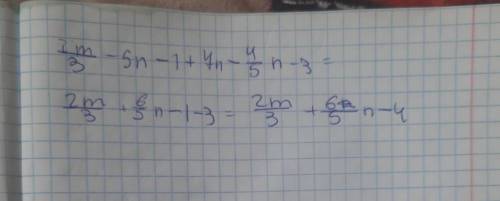 2m/3 - 5n - 1 + 4n - 4/5 n - 3 =
2m/3 + 6/5 n - 1 - 3 = 2m/3 + 6/5 n - 4